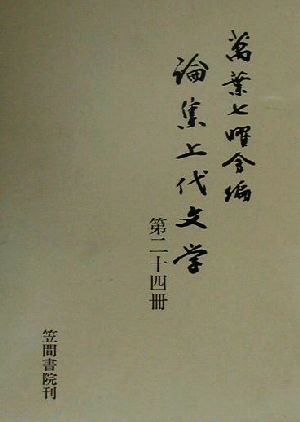 萬葉七曜會編
論集上代文学
第二十四冊
笠間書院刊